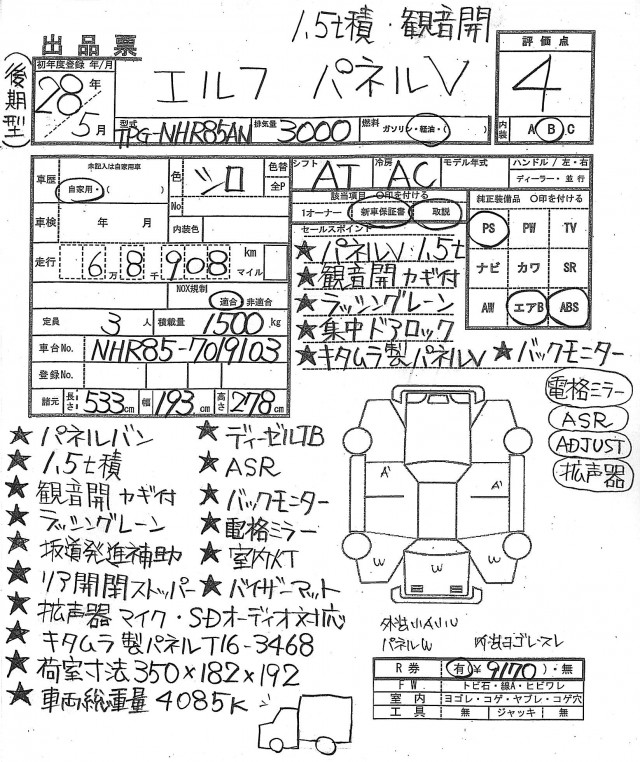 1.5t積・観音開
出品票
(後期型)
初年度登録 年/月
28年/5月
エルフ パネルV
評価点
4
内装 A B C
型式 TPG-NHR85AN 排気量 3000 燃料 ガソリン・軽油・( )
未記入は自家用車
車歴 自家用・( )
色 シロ 色替 全P
No
車検 年 月 内装色
走行 6万8千908 km マイル
NOX規制 適合・非適合
定員 3人 積載量 1500kg
車台No. NHR85-7019103
登録No.
諸元 長さ 533cm 幅 193cm 高さ 278cm
シフト AT 冷房 AC モデル年式 ハンドル/左・右
ディーラー・並行
該当項目 〇印を付ける
1オーナー 新車保証書 取説
セールスポイント
★パネルV 1.5t
★観音開カギ付
★ラッシングレーン
★集中ドアロック
★キタムラ製パネルV ★バックモニター
純正装備品 〇印を付ける
PS PW TV
ナビ カワ SR
AW エアB ABS
電格ミラー
ASR
ADJUST
拡声器
★パネルバン ★ディーゼルTB
★1.5t積 ★ASR
★観音開カギ付 ★バックモニター
★ラッシングレーン ★電格ミラー
★坂道発進補助 ★室内KT
★リア開閉ストッパー ★バイザーマット
★拡声器マイク・SDオーディオ対応
★キタムラ製パネルT16-3468
★荷室寸法350×182×192
★車両総重量4085K
A' A'
W W W
パネルW 内出ヨゴレ・スレ
R券 有(¥9170)・無
FW トビ石・線A・ヒビワレ
室内 ヨゴレ・コゲ・ヤブレ・コゲ穴
工具 無 ジャッキ 無